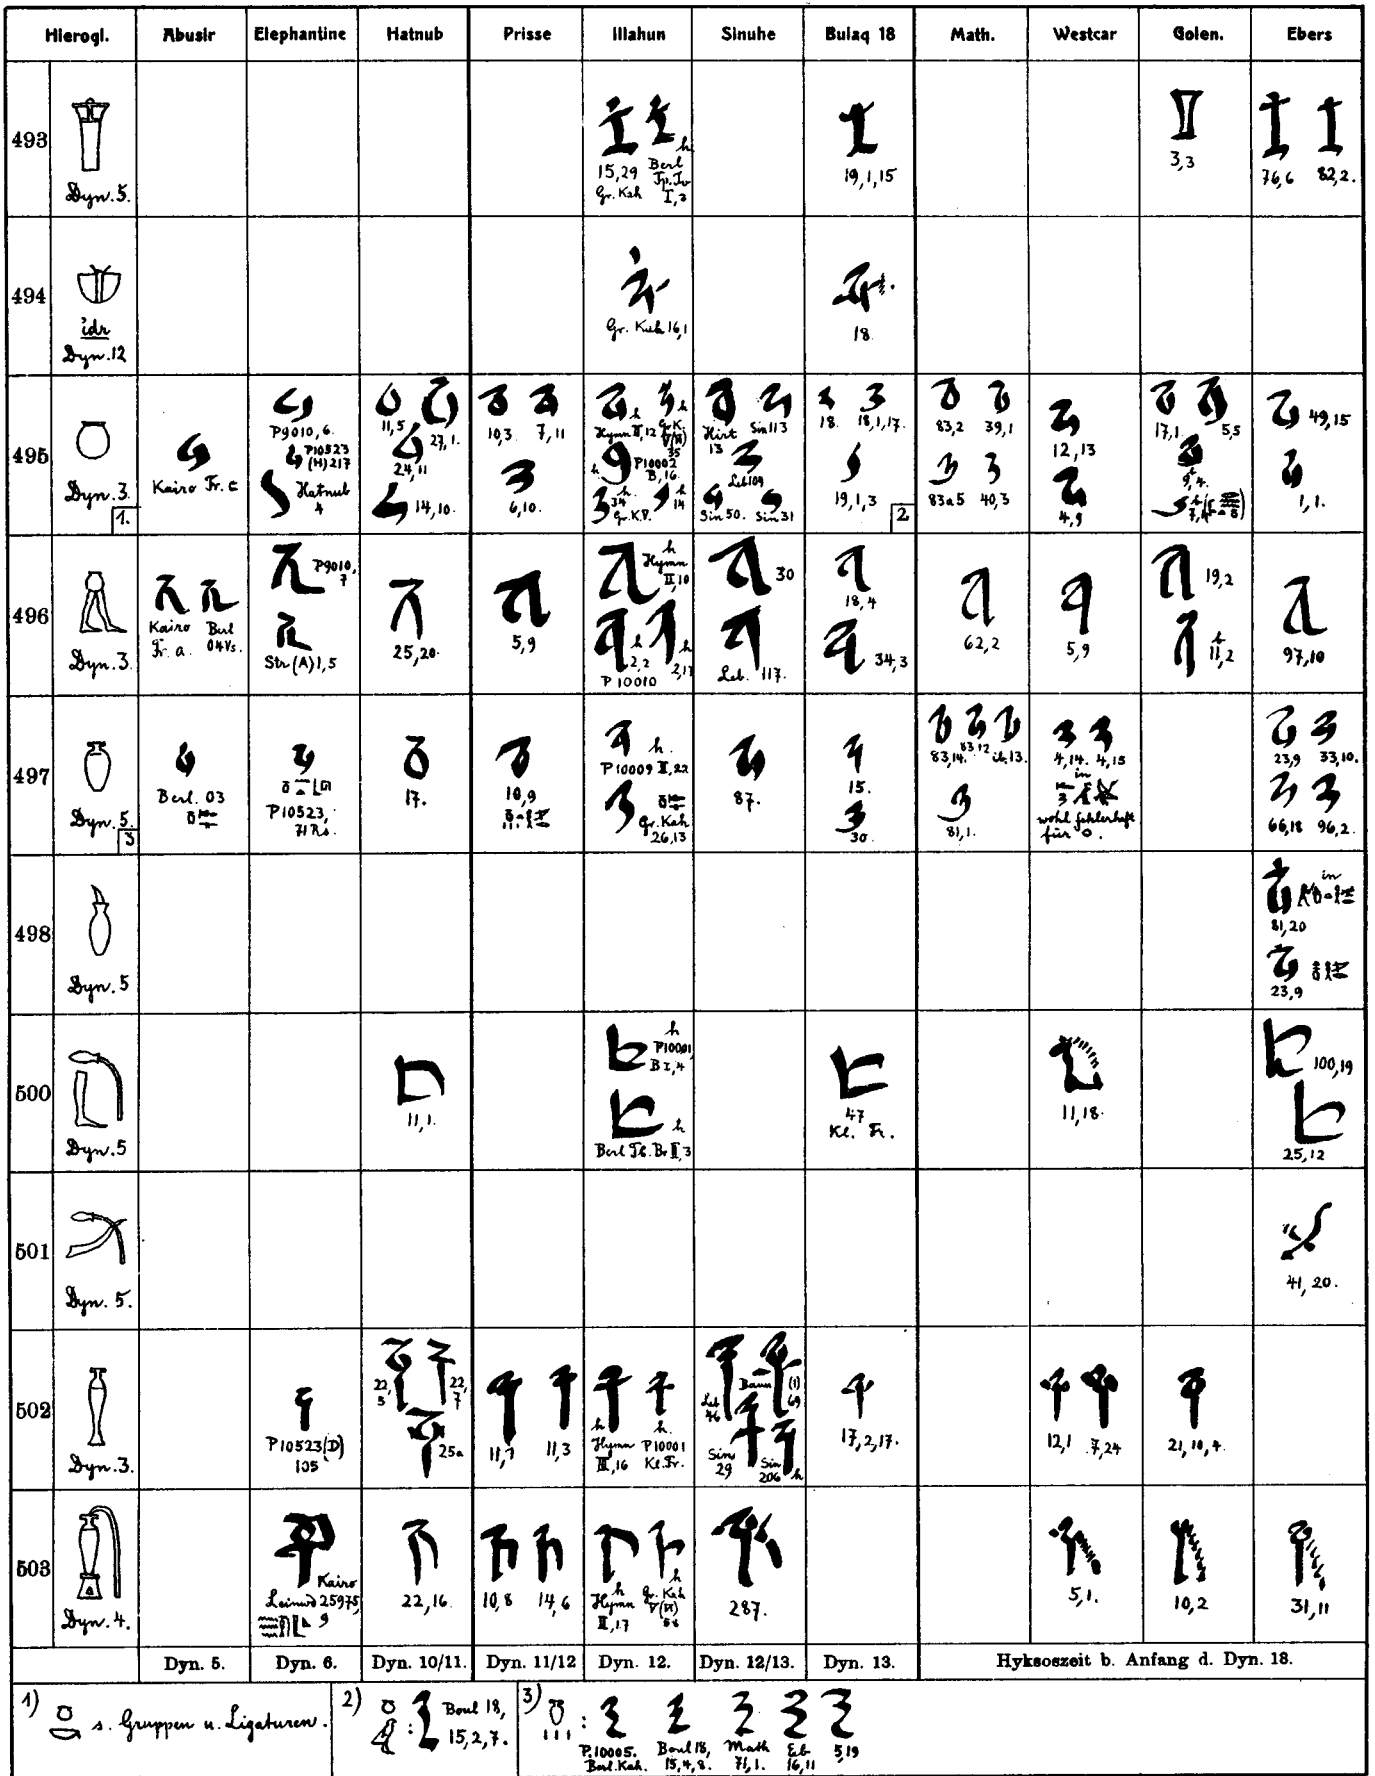 Hierogl. Abusir Elephantine Hatnub Prisse Illahun Sinuhe Bulaq 18 Math. Westcar Golen. Ebers
493
Dyn. 5.
15,29 Gr. Kah
Berl
I,3
19,1,15
3,3
76,6 82,2.
494
idr
Dyn. 12
Gr. Kah 16,1
18.
495
Dyn. 3.
1.
Kairo Fr. c
P9010, 6.
P10523 (H) 217
Hatnub 4
11,5 27,1.
24,11
14,10.
10,3. 7,11
6,10.
h Hymn II,12
P10002 B,16.
h 14
Hirt 13 Sin 113
Leb 109
Sin 50. Sin 31
18. 18,1,17.
19,1,3
2
83,2 39,1
83a5 40,3
12,13
4,9
17,1. 5,5
9,4.
49,15
1,1.
496
Dyn. 3.
Kairo Fr. a.
Berl 04 Vs.
P9010, 7
Str (A) 1,5
25,20.
5,9
h Hymn II,10
h 2,2 h 2,17
P 10010
30
Leb. 117.
18,4
34,3
62,2
5,9
19,2
h 11,2
97,10
497
Dyn. 5.
3
Berl. 03
P10523, 71 Rs.
17.
10,9
h.
P10009 II,22
Gr. Kah 26,13
87.
15.
30.
83,14. 83,12 ib. 13.
81,1.
4,14. 4,15
in
wohl fehlerhaft
für
23,9 33,10.
66,18 96,2.
498
Dyn. 5
in
81,20
23,9
500
Dyn. 5
11,1.
h
P10001
B I,4
h
47
Kl. Fr.
11,18.
100,19
25,12
501
Dyn. 5.
41, 20.
502
Dyn. 3.
P10523 (D)
105
22,5 22,7
25a
11,7 11,3
h Hymn III,16
h. P10001 Kl. Fr.
Leb 46
Bauer (1) 69
Sin 29
Sin 206 h
17,2,17.
12,1 7,24
21,10,4.
503
Dyn. 4.
Kairo
25975,
9
22,16.
10,8 14,6
h Hymn II,17
h Gr. Kah V(VI) 58
287.
5,1.
10,2
31,11
Dyn. 5. Dyn. 6. Dyn. 10/11. Dyn. 11/12 Dyn. 12. Dyn. 12/13. Dyn. 13. Hyksoszeit b. Anfang d. Dyn. 18.
1) s. Gruppen u. Ligaturen.
2) : Boul 18, 15,2,7.
3) : P.10005. Berl. Kah. Boul 18, 15,4,8. Math 71,1. Eb 16,11 5,19